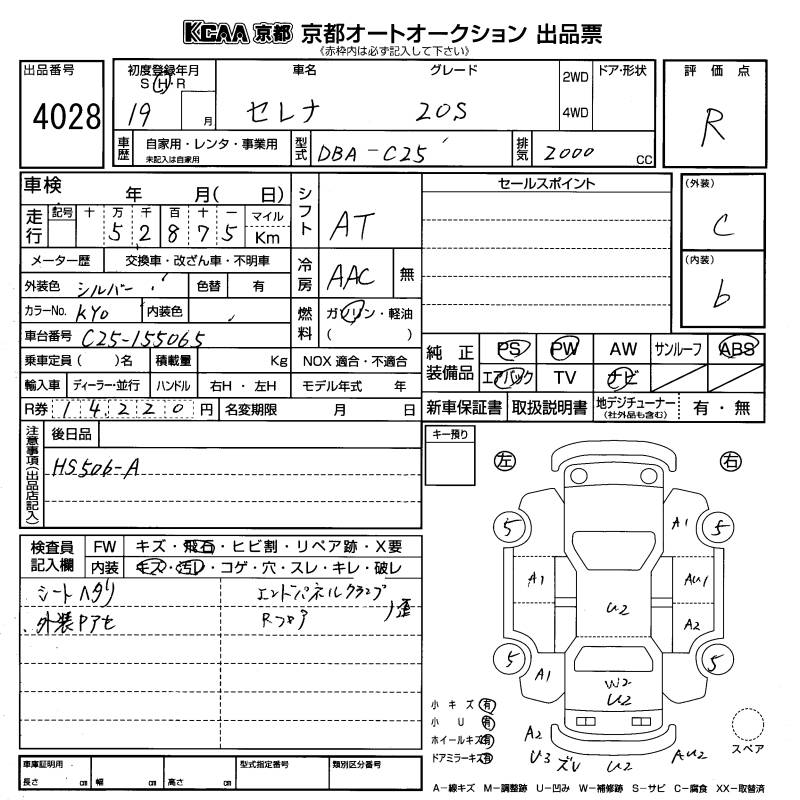 KCAA 京都 京都オートオークション 出品票
《赤枠内は必ず記入して下さい》
出品番号
4028
初度登録年月
S・H・R
19 月
車名
セレナ
グレード
20S
2WD
4WD
ドア・形状
評価点
R
車歴
自家用・レンタ・事業用
未記入は自家用
型式
DBA-C25
排気
2000 CC
車検 年 月( 日)
走行
記号 十 万 千 百 十 一 マイル
5 2 8 7 5 Km
メーター歴 交換車・改ざん車・不明車
外装色 シルバー 色替 有
カラーNo. KY0 内装色
車台番号 C25-155065
乗車定員( )名 積載量 Kg NOX 適合・不適合
輸入車 ディーラー・並行 ハンドル 右H・左H モデル年式 年
R券 1 4 2 2 0 円 名変期限 月 日
シフト
AT
冷房
AAC 無
燃料
ガソリン・軽油
( )
セールスポイント
(外装)
C
(内装)
b
純正装備品
PS PW AW サンルーフ ABS
エアバック TV ナビ
新車保証書 取扱説明書 地デジチューナー
(社外品も含む)
有・無
注意事項(出品店記入)
後日品
HS506-A
キー預り
左 右
検査員記入欄
FW キズ・飛石・ヒビ割・リペア跡・X要
内装 キズ・汚レ・コゲ・穴・スレ・キレ・破レ
シートヘタリ
外装アセ
エンドパネルクランプ
Rフロア
歪
5 5
A1
A1 AU1
U2
A2
5 5
A1
W2
U2
A2
U3 ズレ U2 AU2
小キズ 有
小U 有
ホイールキズ 有
ドアミラーキズ 有
スペア
車庫証明用
長さ cm 幅 cm 高さ cm
型式指定番号
類別区分番号
A-線キズ M-調整跡 U-凹み W-補修跡 S-サビ C-腐食 XX-取替済